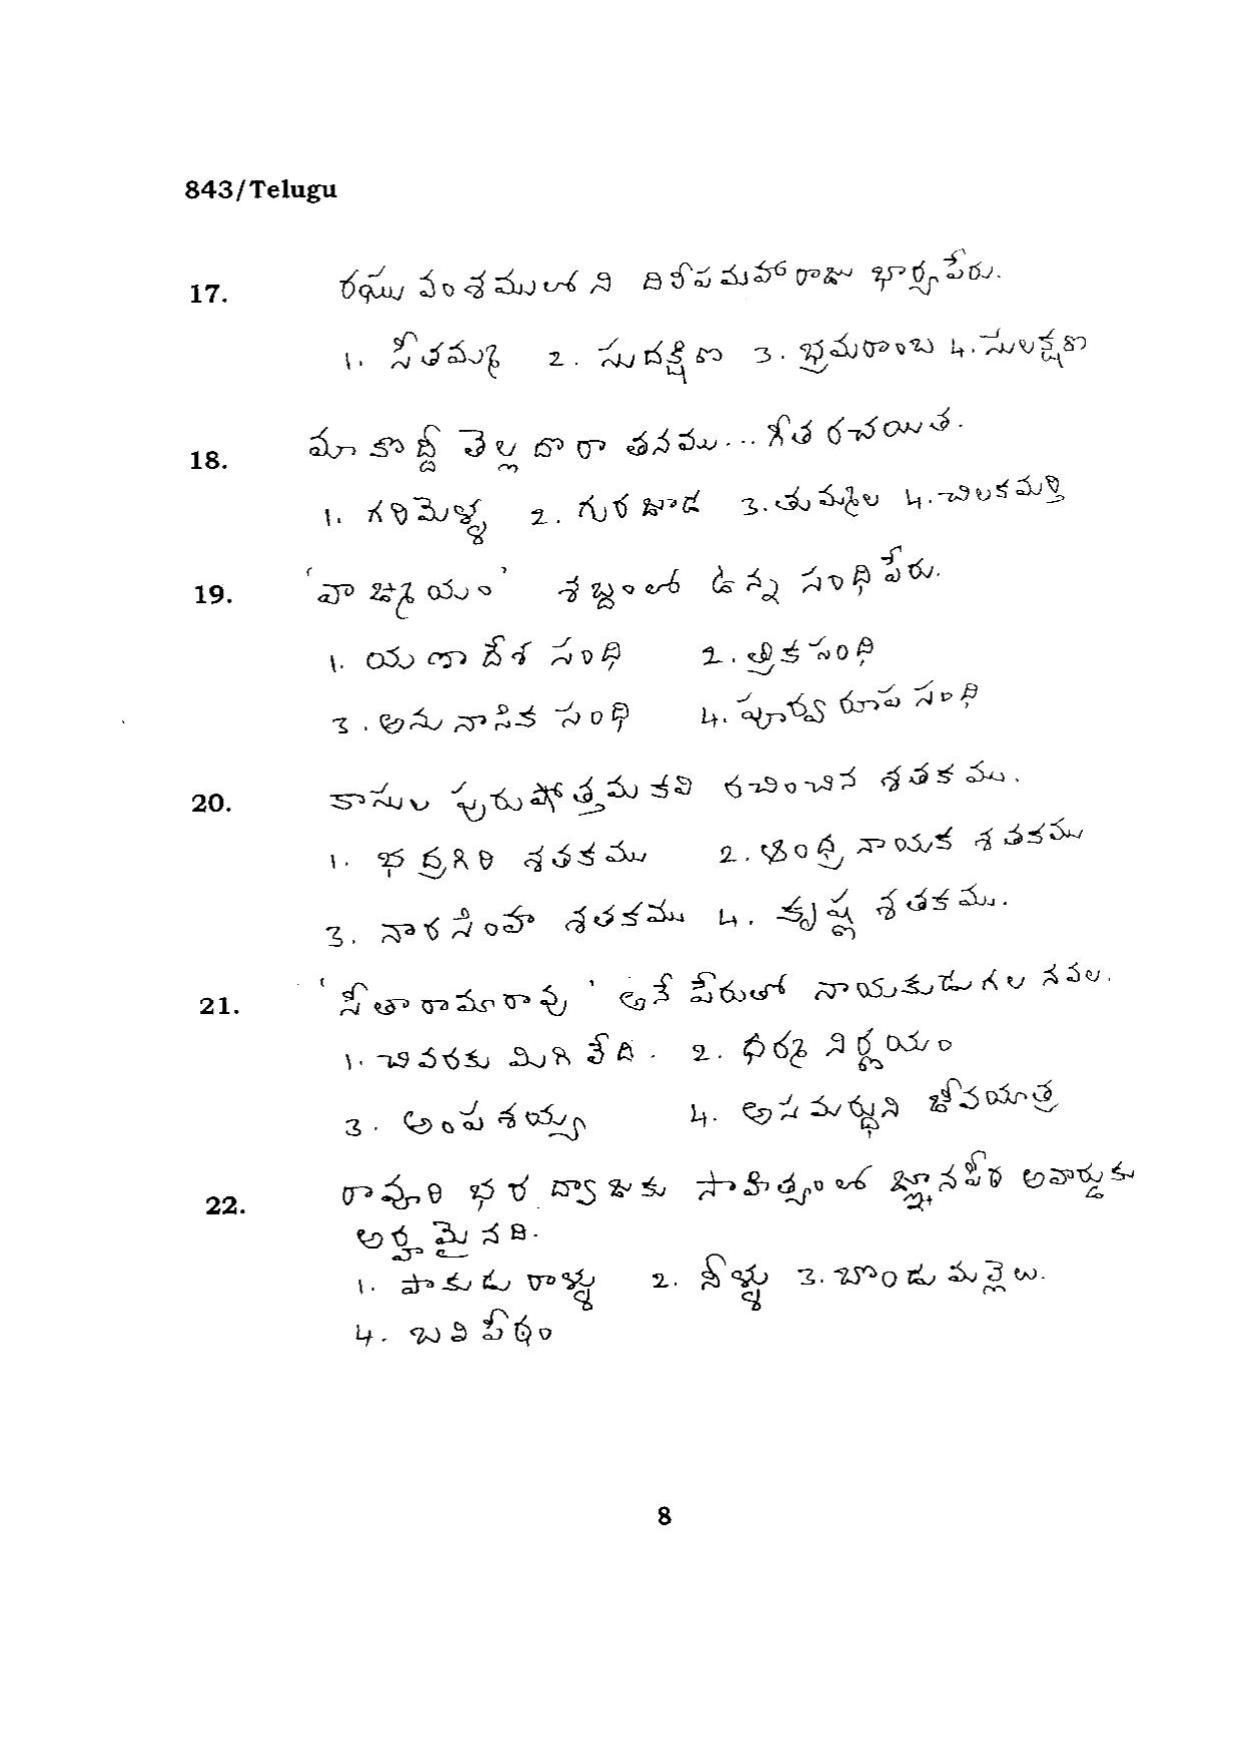 843/Telugu
17. రఘు వంశములోని దిలీపమహారాజు భార్యపేరు.
1. సీతమ్మ 2. సుదక్షిణ 3. భ్రమరాంబ 4. సులక్షణ
18. మా కొద్దీ తెల్ల దొరా తనము... గీత రచయిత.
1. గరిమెళ్ళ 2. గురజాడ 3. తుమ్మల 4. చిలకమర్తి
19. 'వాఙ్మయం' శబ్దంలో ఉన్న సంధిపేరు.
1. యణాదేశ సంధి 2. త్రికసంధి
3. అనునాసిక సంధి 4. పూర్వరూప సంధి
20. కాసుల పురుషోత్తమకవి రచించిన శతకము.
1. భద్రగిరి శతకము 2. ఆంధ్ర నాయక శతకము
3. నారసింహ శతకము 4. కృష్ణ శతకము.
21. 'సీతారామారావు' అనే పేరుతో నాయకుడుగల నవల.
1. చివరకు మిగిలేది. 2. ధర్మ నిర్ణయం
3. అంపశయ్య 4. అసమర్థుని జీవయాత్ర
22. రావూరి భరద్వాజకు సాహిత్యంలో జ్ఞానపీఠ అవార్డుకు
అర్హమైనది.
1. పాకుడు రాళ్ళు 2. నీళ్ళు 3. బొండు మల్లెలు.
4. బలిపీఠం
8